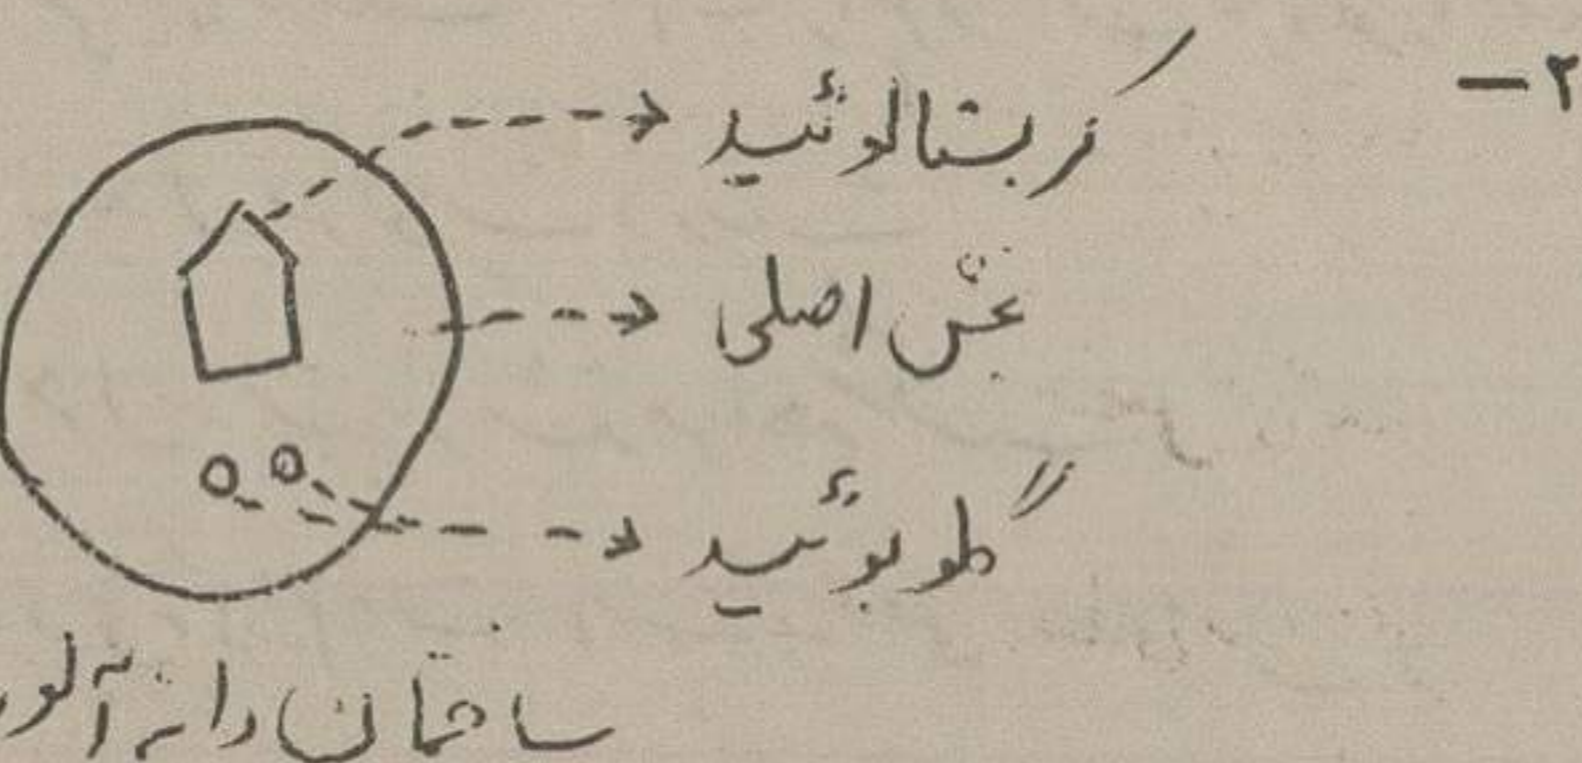 ۲ –
کریستالوئید
بخش اصلی
گلوبوئید
ساختمان دانه آلور